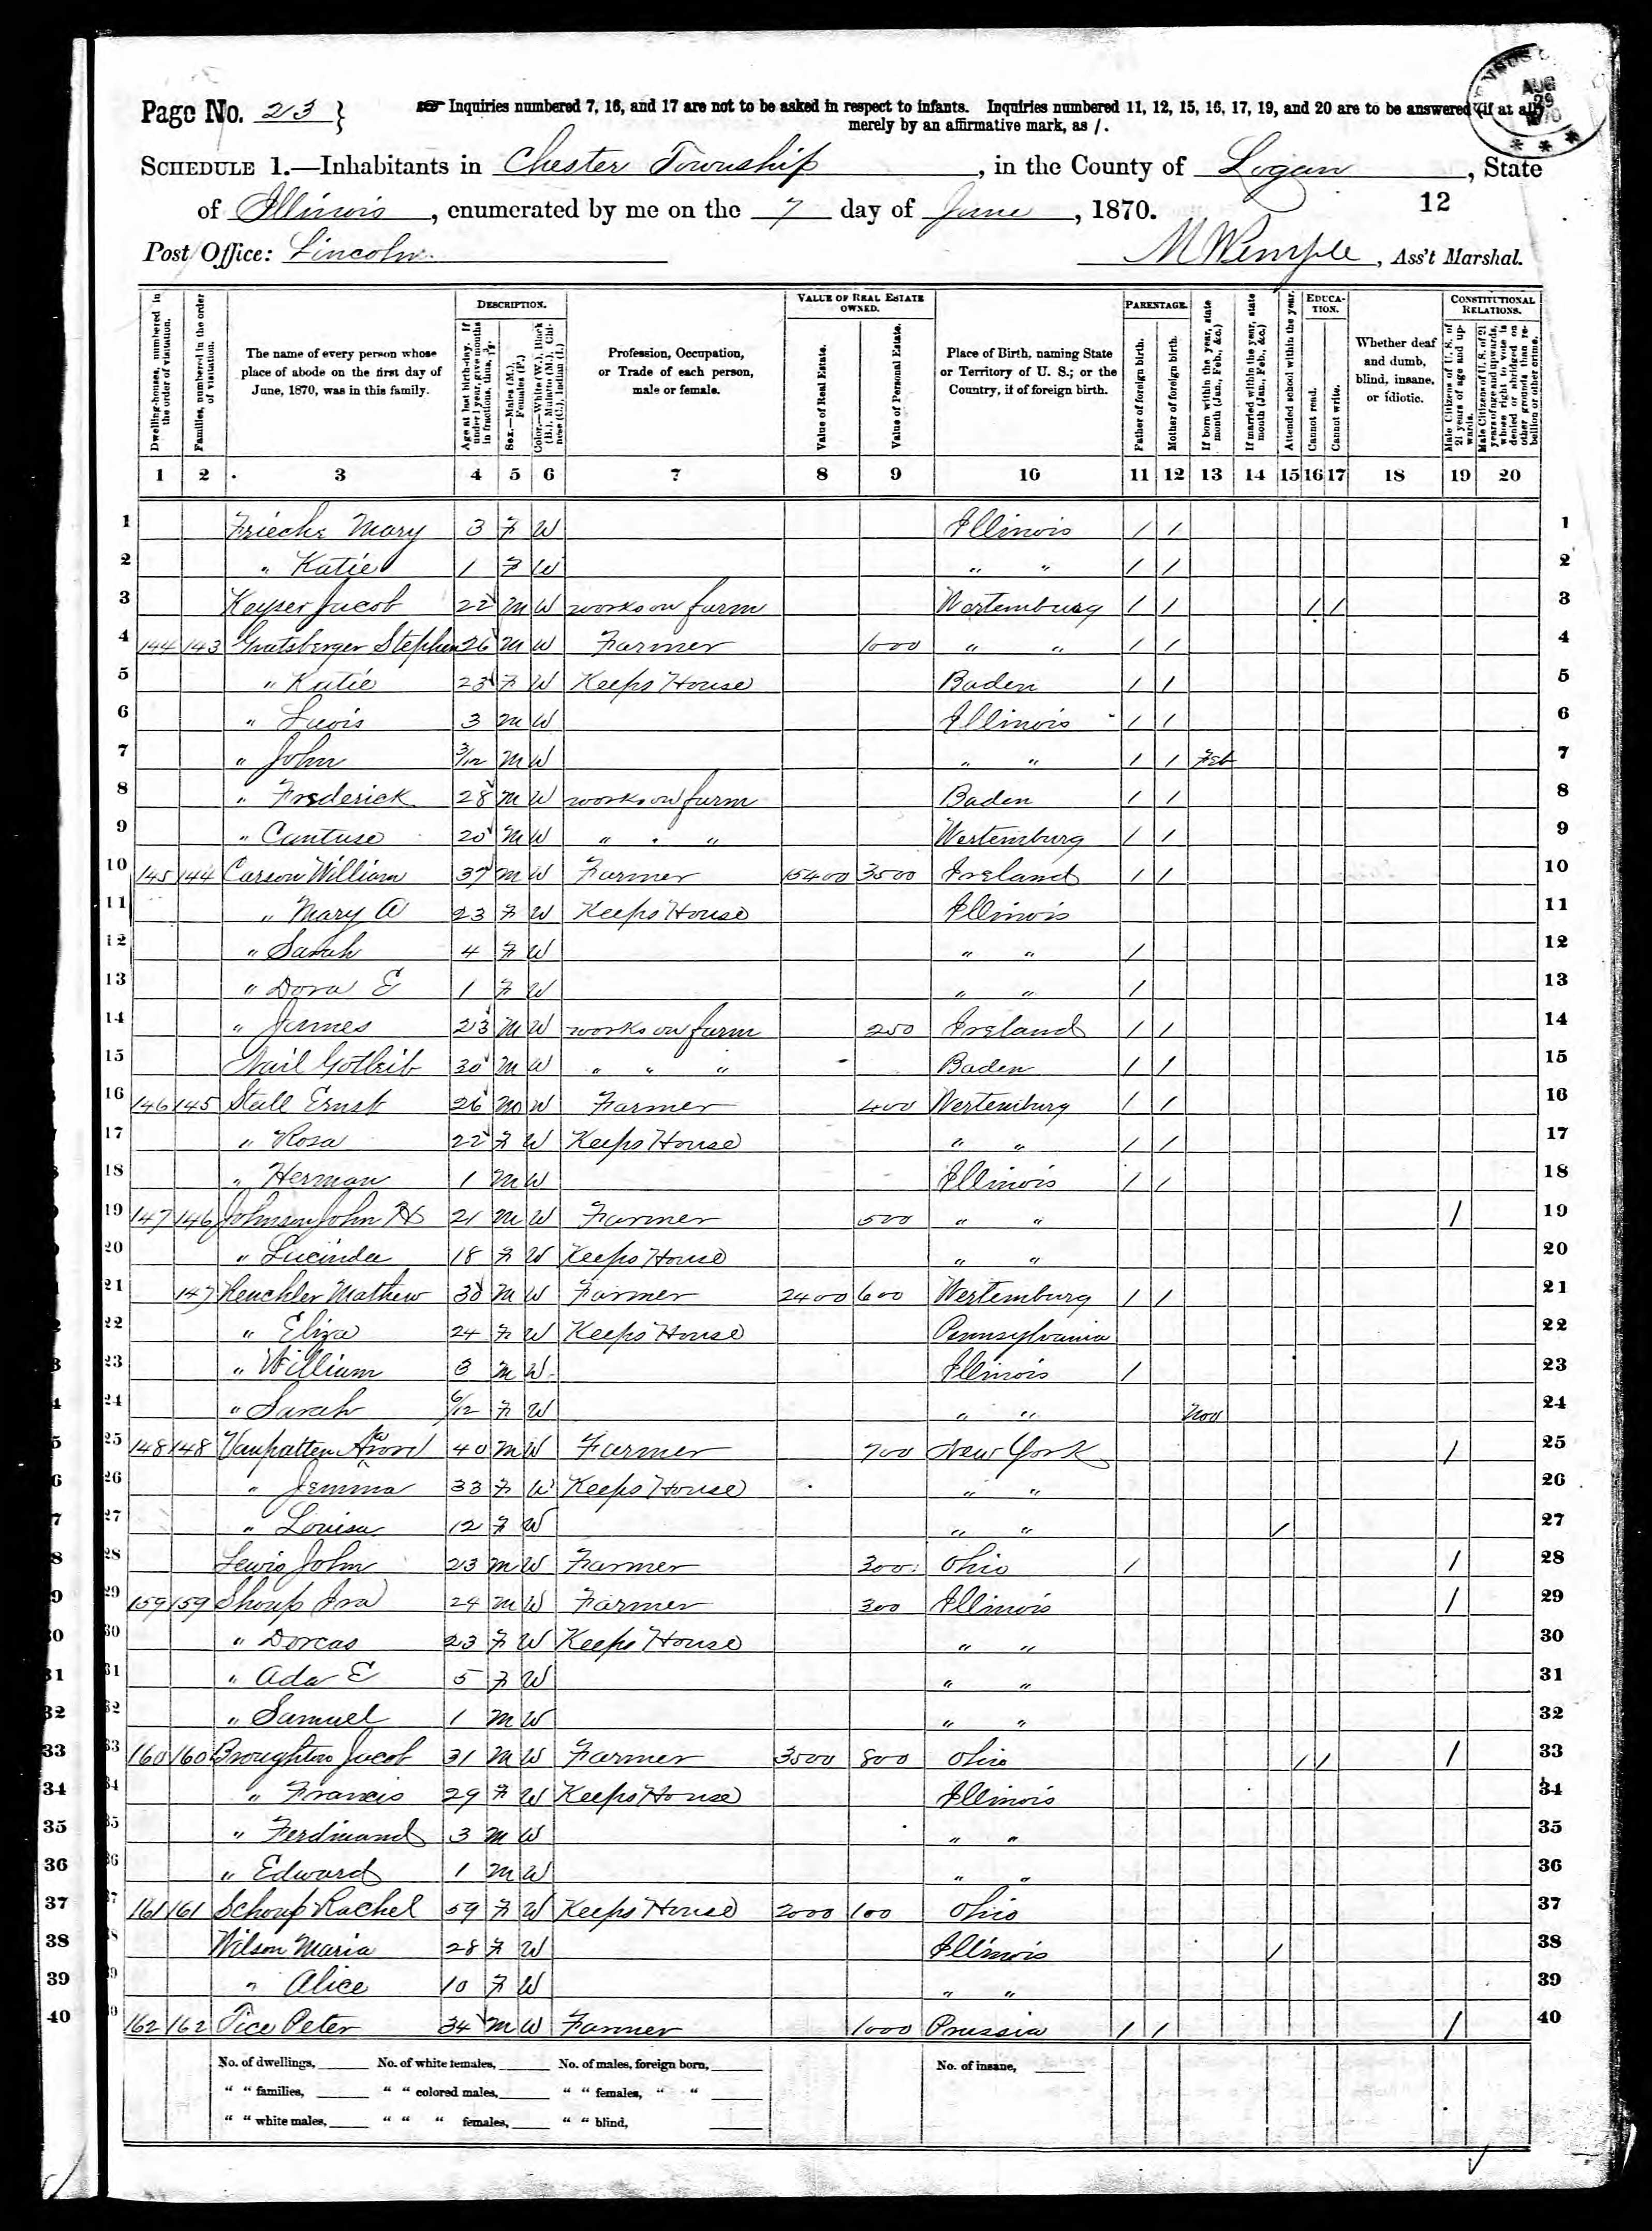 Page No. 23 }
Inquiries numbered 7, 16, and 17 are not to be asked in respect to infants. Inquiries numbered 11, 12, 15, 16, 17, 19, and 20 are to be answered (if at all)
merely by an affirmative mark, as /.
AUG 29 1870
SCHEDULE 1.—Inhabitants in Chester Township, in the County of Logan, State
of Illinois, enumerated by me on the 7 day of June, 1870. 12
Post Office: Lincoln. M Wemple, Ass't Marshal.
DESCRIPTION. VALUE OF REAL ESTATE OWNED. PARENTAGE. EDUCATION. CONSTITUTIONAL RELATIONS.
Dwelling-houses, numbered in the order of visitation.
Families, numbered in the order of visitation.
The name of every person whose place of abode on the first day of June, 1870, was in this family.
Age at last birth-day. If under 1 year, give months in fractions, thus, 3/12.
Sex.—Males (M.), Females (F.)
Color.—White (W.), Black (B.), Mulatto (M.), Chinese (C.), Indian (I.)
Profession, Occupation, or Trade of each person, male or female.
Value of Real Estate.
Value of Personal Estate.
Place of Birth, naming State or Territory of U. S.; or the Country, if of foreign birth.
Father of foreign birth.
Mother of foreign birth.
If born within the year, state month (Jan., Feb., &c.)
If married within the year, state month (Jan., Feb., &c.)
Attended school within the year.
Cannot read.
Cannot write.
Whether deaf and dumb, blind, insane, or idiotic.
Male Citizens of U. S. of 21 years of age and upwards.
Male Citizens of U. S. of 21 years of age and upwards, whose right to vote is denied or abridged on other grounds than rebellion or other crime.
1 2 3 4 5 6 7 8 9 10 11 12 13 14 15 16 17 18 19 20
1 Mary 3 F W Illinois / / 1
2 " Katie 1 F W " " / / 2
3 Keyser Jacob 22 M W works on farm Wertemburg / / / / 3
4 144 143 Gratsberger Stephen 26 M W Farmer 1000 " " / / 4
5 " Katie 23 F W Keeps House Baden / / 5
6 " Lewis 3 M W Illinois / / 6
7 " John 3/12 M W " " / / Feb 7
8 " Frederick 28 M W works on farm Baden / / 8
9 " 20 M W " " " Wertemburg / / 9
10 145 144 Carson William 37 M W Farmer 15400 3500 Ireland / / 10
11 " Mary A 23 F W Keeps House Illinois 11
12 " Sarah 4 F W " " / 12
13 " Dora E 1 F W " " / 13
14 " James 23 M W works on farm 250 Ireland / / 14
15 Gotleib 30 M W " " " Baden / / 15
16 146 145 Stall Ernst 26 M W Farmer 400 Wertemburg / / 16
17 " Rosa 22 F W Keeps House " " / / 17
18 " Herman 1 M W Illinois / / 18
19 147 146 Johnson John 21 M W Farmer 500 " " / 19
20 " Lucinda 18 F W Keeps House " " 20
21 147 Heuchler Mathew 30 M W Farmer 2400 600 Wertemburg / / 21
22 " Eliza 24 F W Keeps House Pennsylvania 22
23 " William 3 M W Illinois / 23
24 " Sarah 6/12 F W " " Nov 24
25 148 148 Vanpatten 40 M W Farmer 700 New York / 25
26 " Jemima 33 F W Keeps House " " 26
27 " Louisa 12 F W " " / 27
28 Lewis John 23 M W Farmer 300 Ohio / / 28
29 159 159 Shoup Ira 24 M W Farmer 300 Illinois / 29
30 " Dorcas 23 F W Keeps House " " 30
31 " Ada E 5 F W " " 31
32 " Samuel 1 M W " " 32
33 160 160 Broughton Jacob 31 M W Farmer 3500 800 Ohio / / / 33
34 " Francis 29 F W Keeps House Illinois 34
35 " Ferdinand 3 M W " " 35
36 " Edward 1 M W " " 36
37 161 161 Schoup Rachel 59 F W Keeps House 2000 100 Ohio 37
38 Wilson Maria 28 F W Illinois / 38
39 " Alice 10 F W " " 39
40 162 162 Tice Peter 34 M W Farmer 1000 Prussia / / / 40
No. of dwellings, No. of white females, No. of males, foreign born, No. of insane,
" " families, " " colored males, " " females, " "
" " white males, " " " females, " " blind,